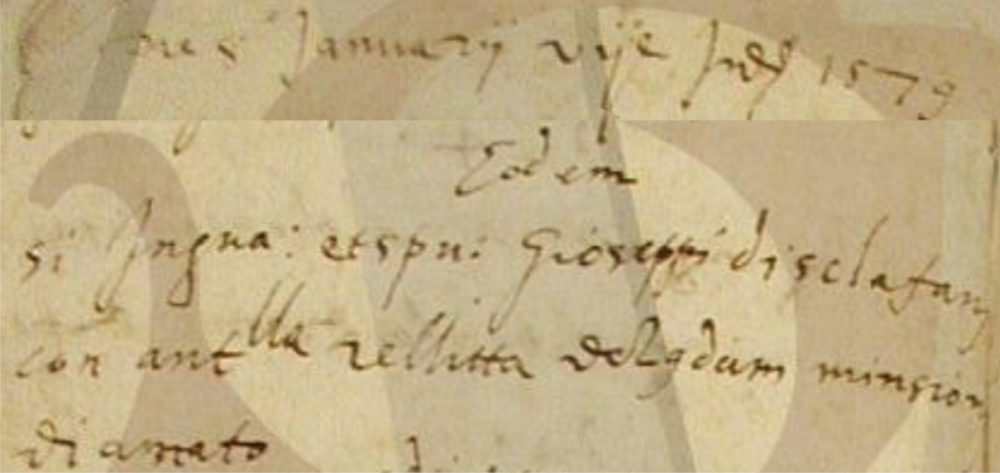 Januarij vije Ind 1579
Eodem
si Ingua: et spu: Gioseppi di sclafani
con ant^lla rellitta del qdam minsion
di amato